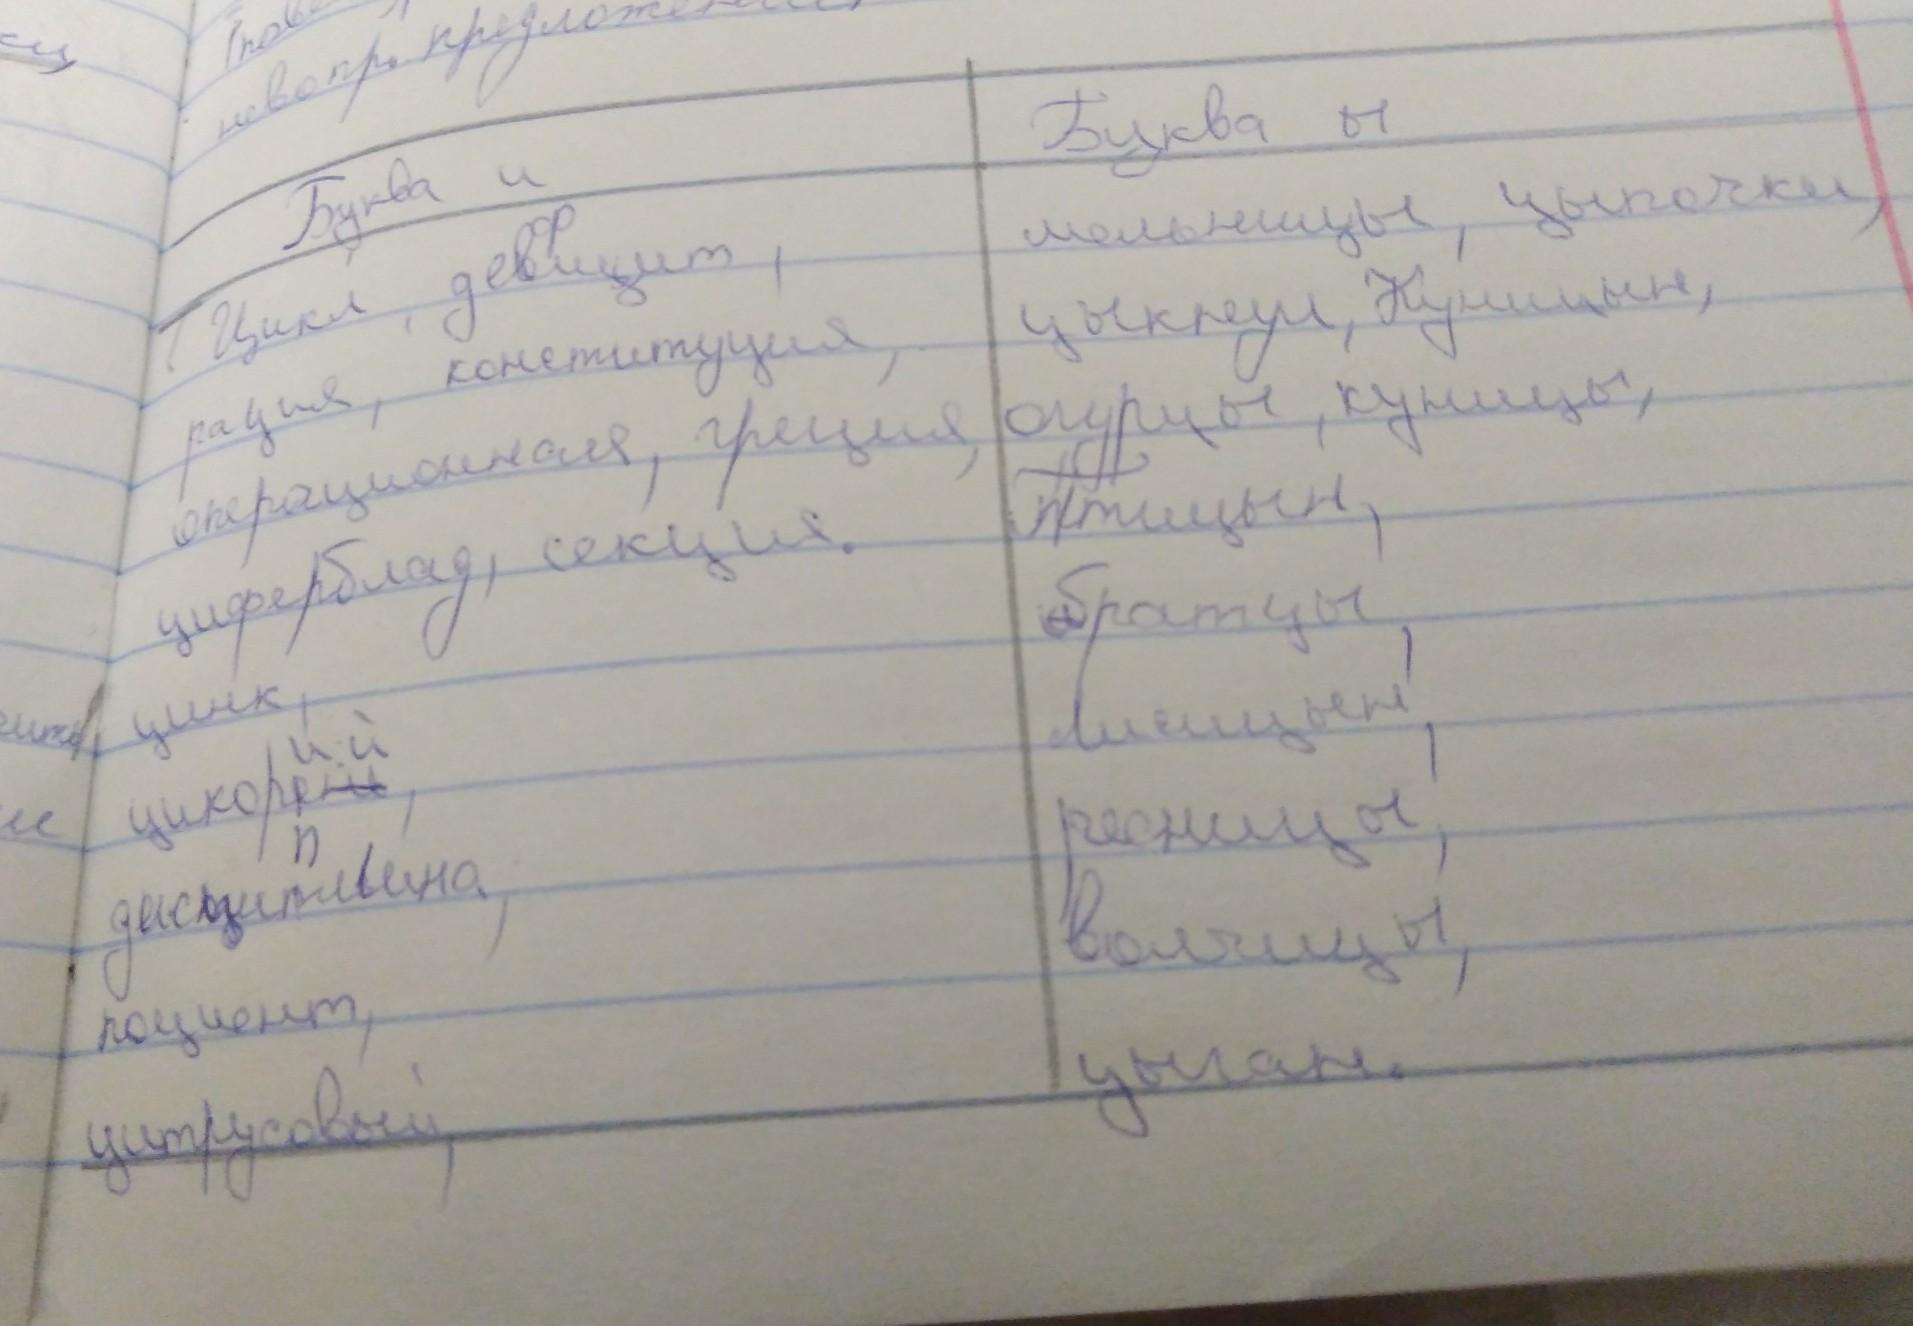 невопр. предложении
Буква и
Цикл, дефицит,
рация, конституция,
операционная, греция,
циферблад, секция.
цинк,
цикорий,
дисциплина,
пациент,
цитрусовый,
Буква ы
мельницы, цыпочки,
цыкнул, Куницын,
огурцы, куницы,
Птицын,
братцы,
Лисицын,
ресницы,
волчицы,
цыган.